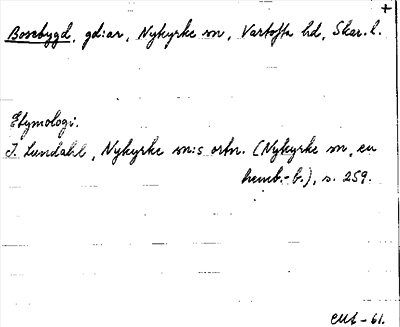 +
Bosebygd, gd:ar, Nykyrke sn, Vartofta hd, Skar. l.
Etymologi.
I. Lundahl, Nykyrke sn:s ortn. (Nykyrke sn, en
hemb.-b.), s. 259.
CMt - 61.